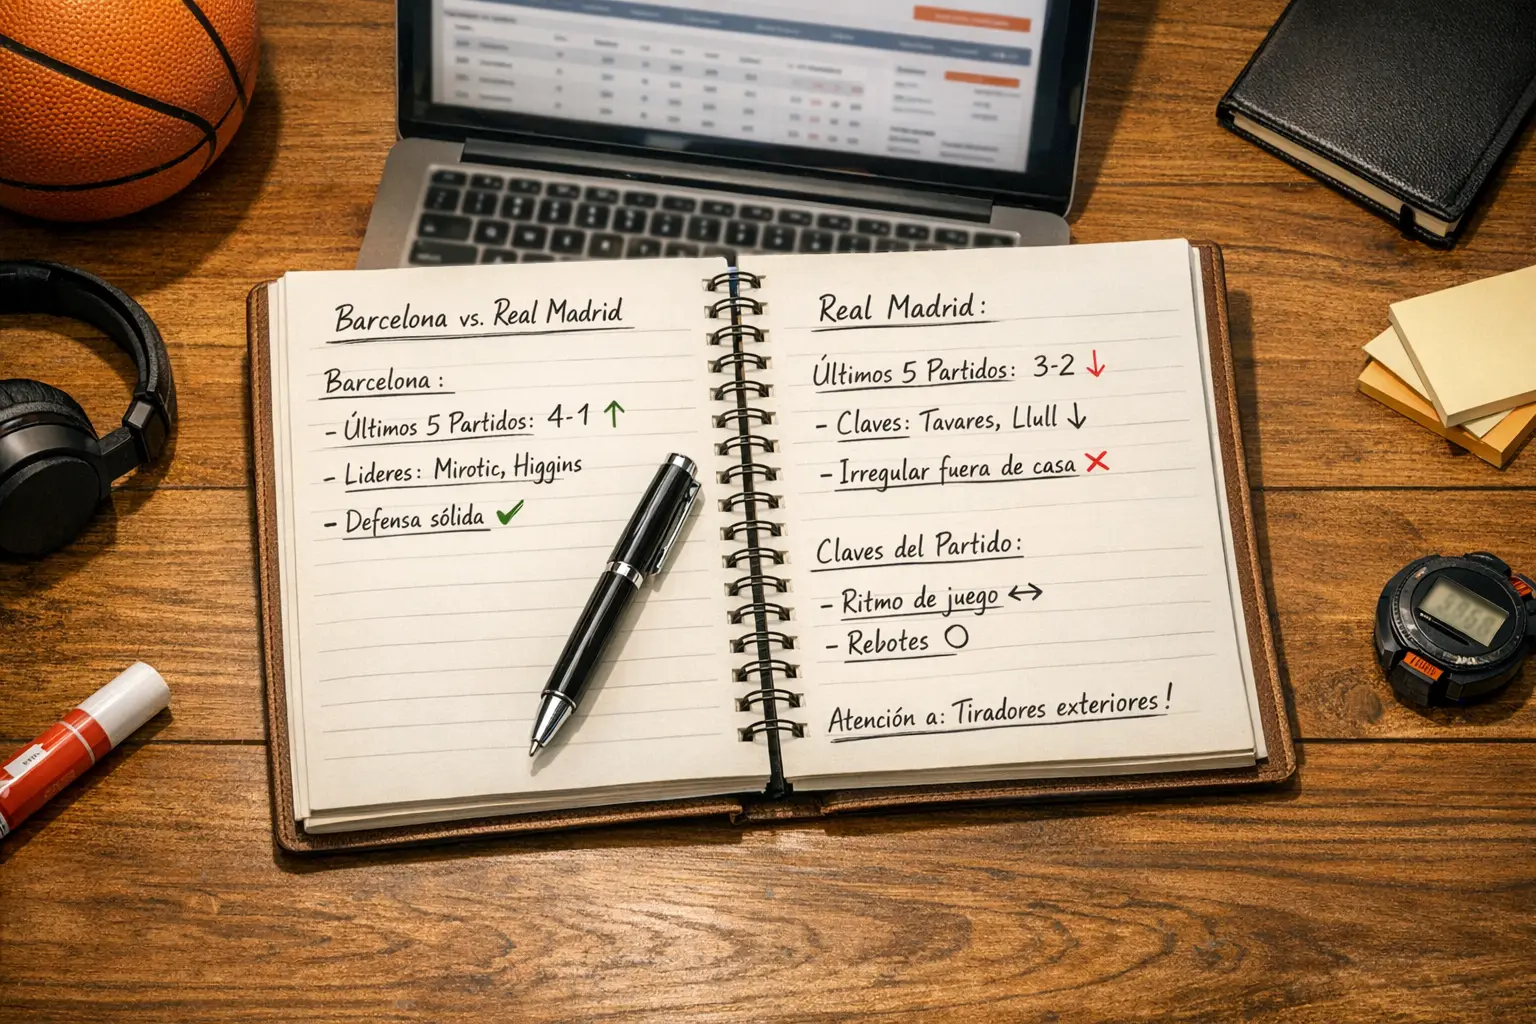 Barcelona vs. Real Madrid
Barcelona :
- Últimos 5 Partidos: 4-1 ↑
- Lideres: Mirotic, Higgins
- Defensa sólida ✓
Real Madrid :
Últimos 5 Partidos: 3-2 ↓
- Claves: Tavares, Llull ↓
- Irregular fuera de casa ✗
Claves del Partido:
- Ritmo de juego ↔
- Rebotes ○
Atención a: Tiradores exteriores!